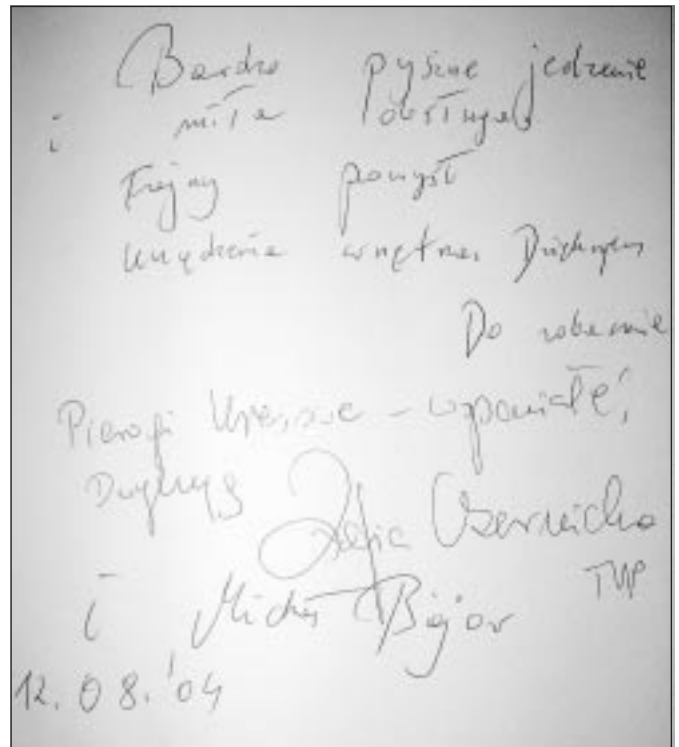 Bardzo pyszne jedzenie
i miła obsługa
Fajny pomysł
urządzenia wnętrza. Dziękujemy
Do zobaczenia
Pierogi - wspaniałe!
Dziękuję
Czernicka
TVP
i Michał Bajor
12.08.'04